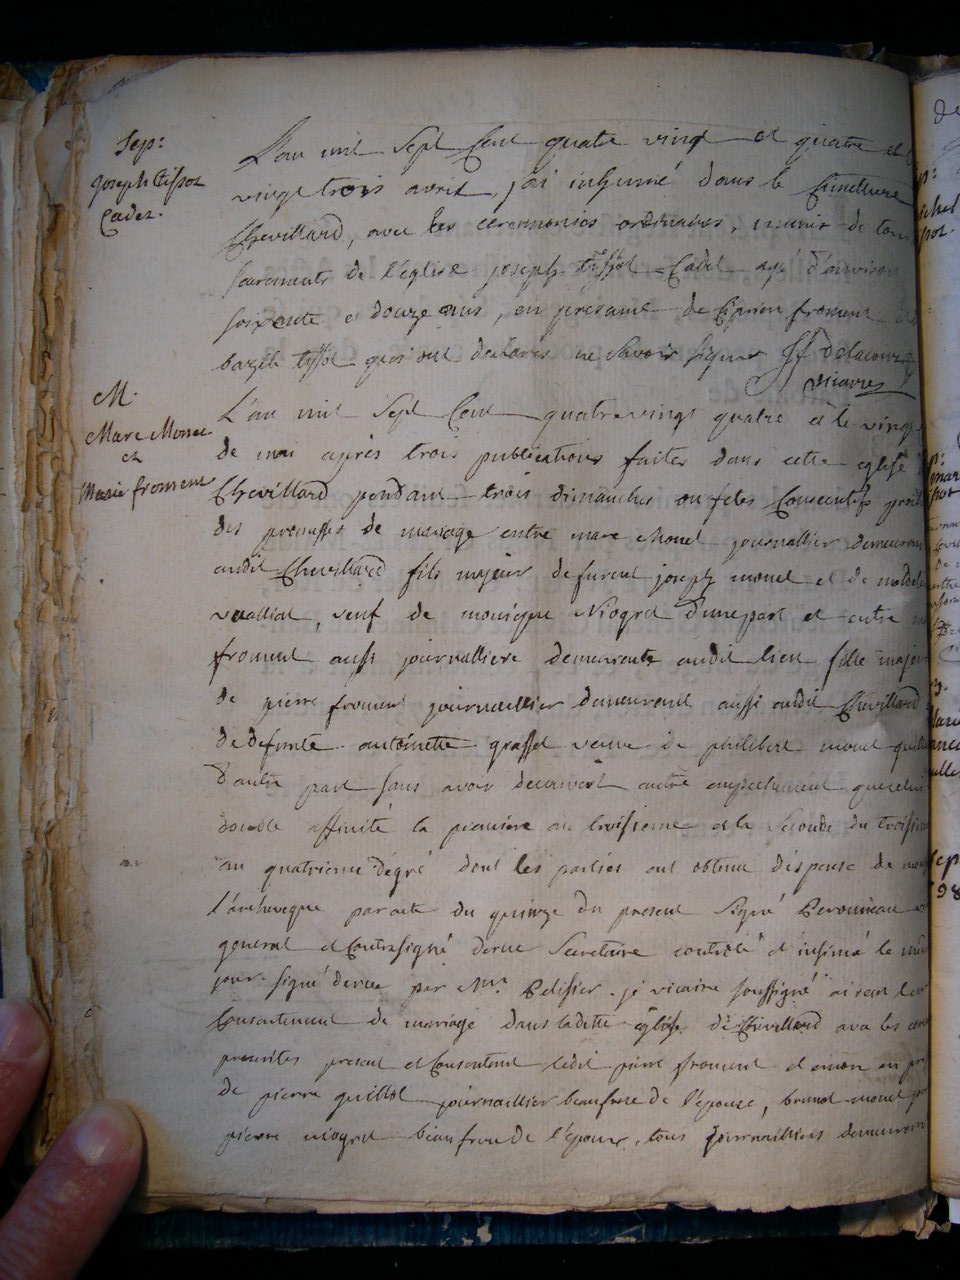 Sep:
joseph tissot
Cadet.
L'an mil Sept Cent quatre vingt et quatre et
vingt trois avril, j'ai inhumé dans le Cimetierre
Chevillard, avec les ceremonies ordinaires, munis de tous
sacrements de l'église joseph tissot Cadet agé d'environ
soixante et douze ans, en présance de Ciprien froment
bazile tissot qui ont déclarés ne savoir signer Delacour
vicaire
M.
Marc Monet
et
Marie froment
L'an mil Sept Cent quatrevingt quatre et le vingt
de mai après trois publications faites dans cette eglise
Chevillard pendant trois dimanches ou fetes Consecutifs
des promesses de mariage entre marc Monet journallier demeurant
audit Chevillard fils majeur de furent joseph monet et de
veuf de monique Niogret d'une part et entre
froment aussi journalliere demeurante audit lieu fille majeur
de pierre froment journaillier demeurant aussi audit Chevillard
de defunte antoinette grasset veuve de philibert monet
d'autre part sans avoir decouvert autre empechement que celui
double affinité la premiere au troisieme et la seconde du troisieme
au quatrieme dégré dont les parties ont obtenu dispense de
l'archeveque par acte du quinze du present signé
general et Contresigné Secretaire controlé et insinué le
jour signé par Mr. Pelissier. je vicaire soussigné ai recu leur
Consentement de mariage dans ladite église de Chevillard avec les
prescrites present et Consentant ledit pierre froment et encore en
de pierre guillot journaillier beaufrere de l'épouse, monet
pierre niogret beaufrere de l'époux, tous journailliers demeurant